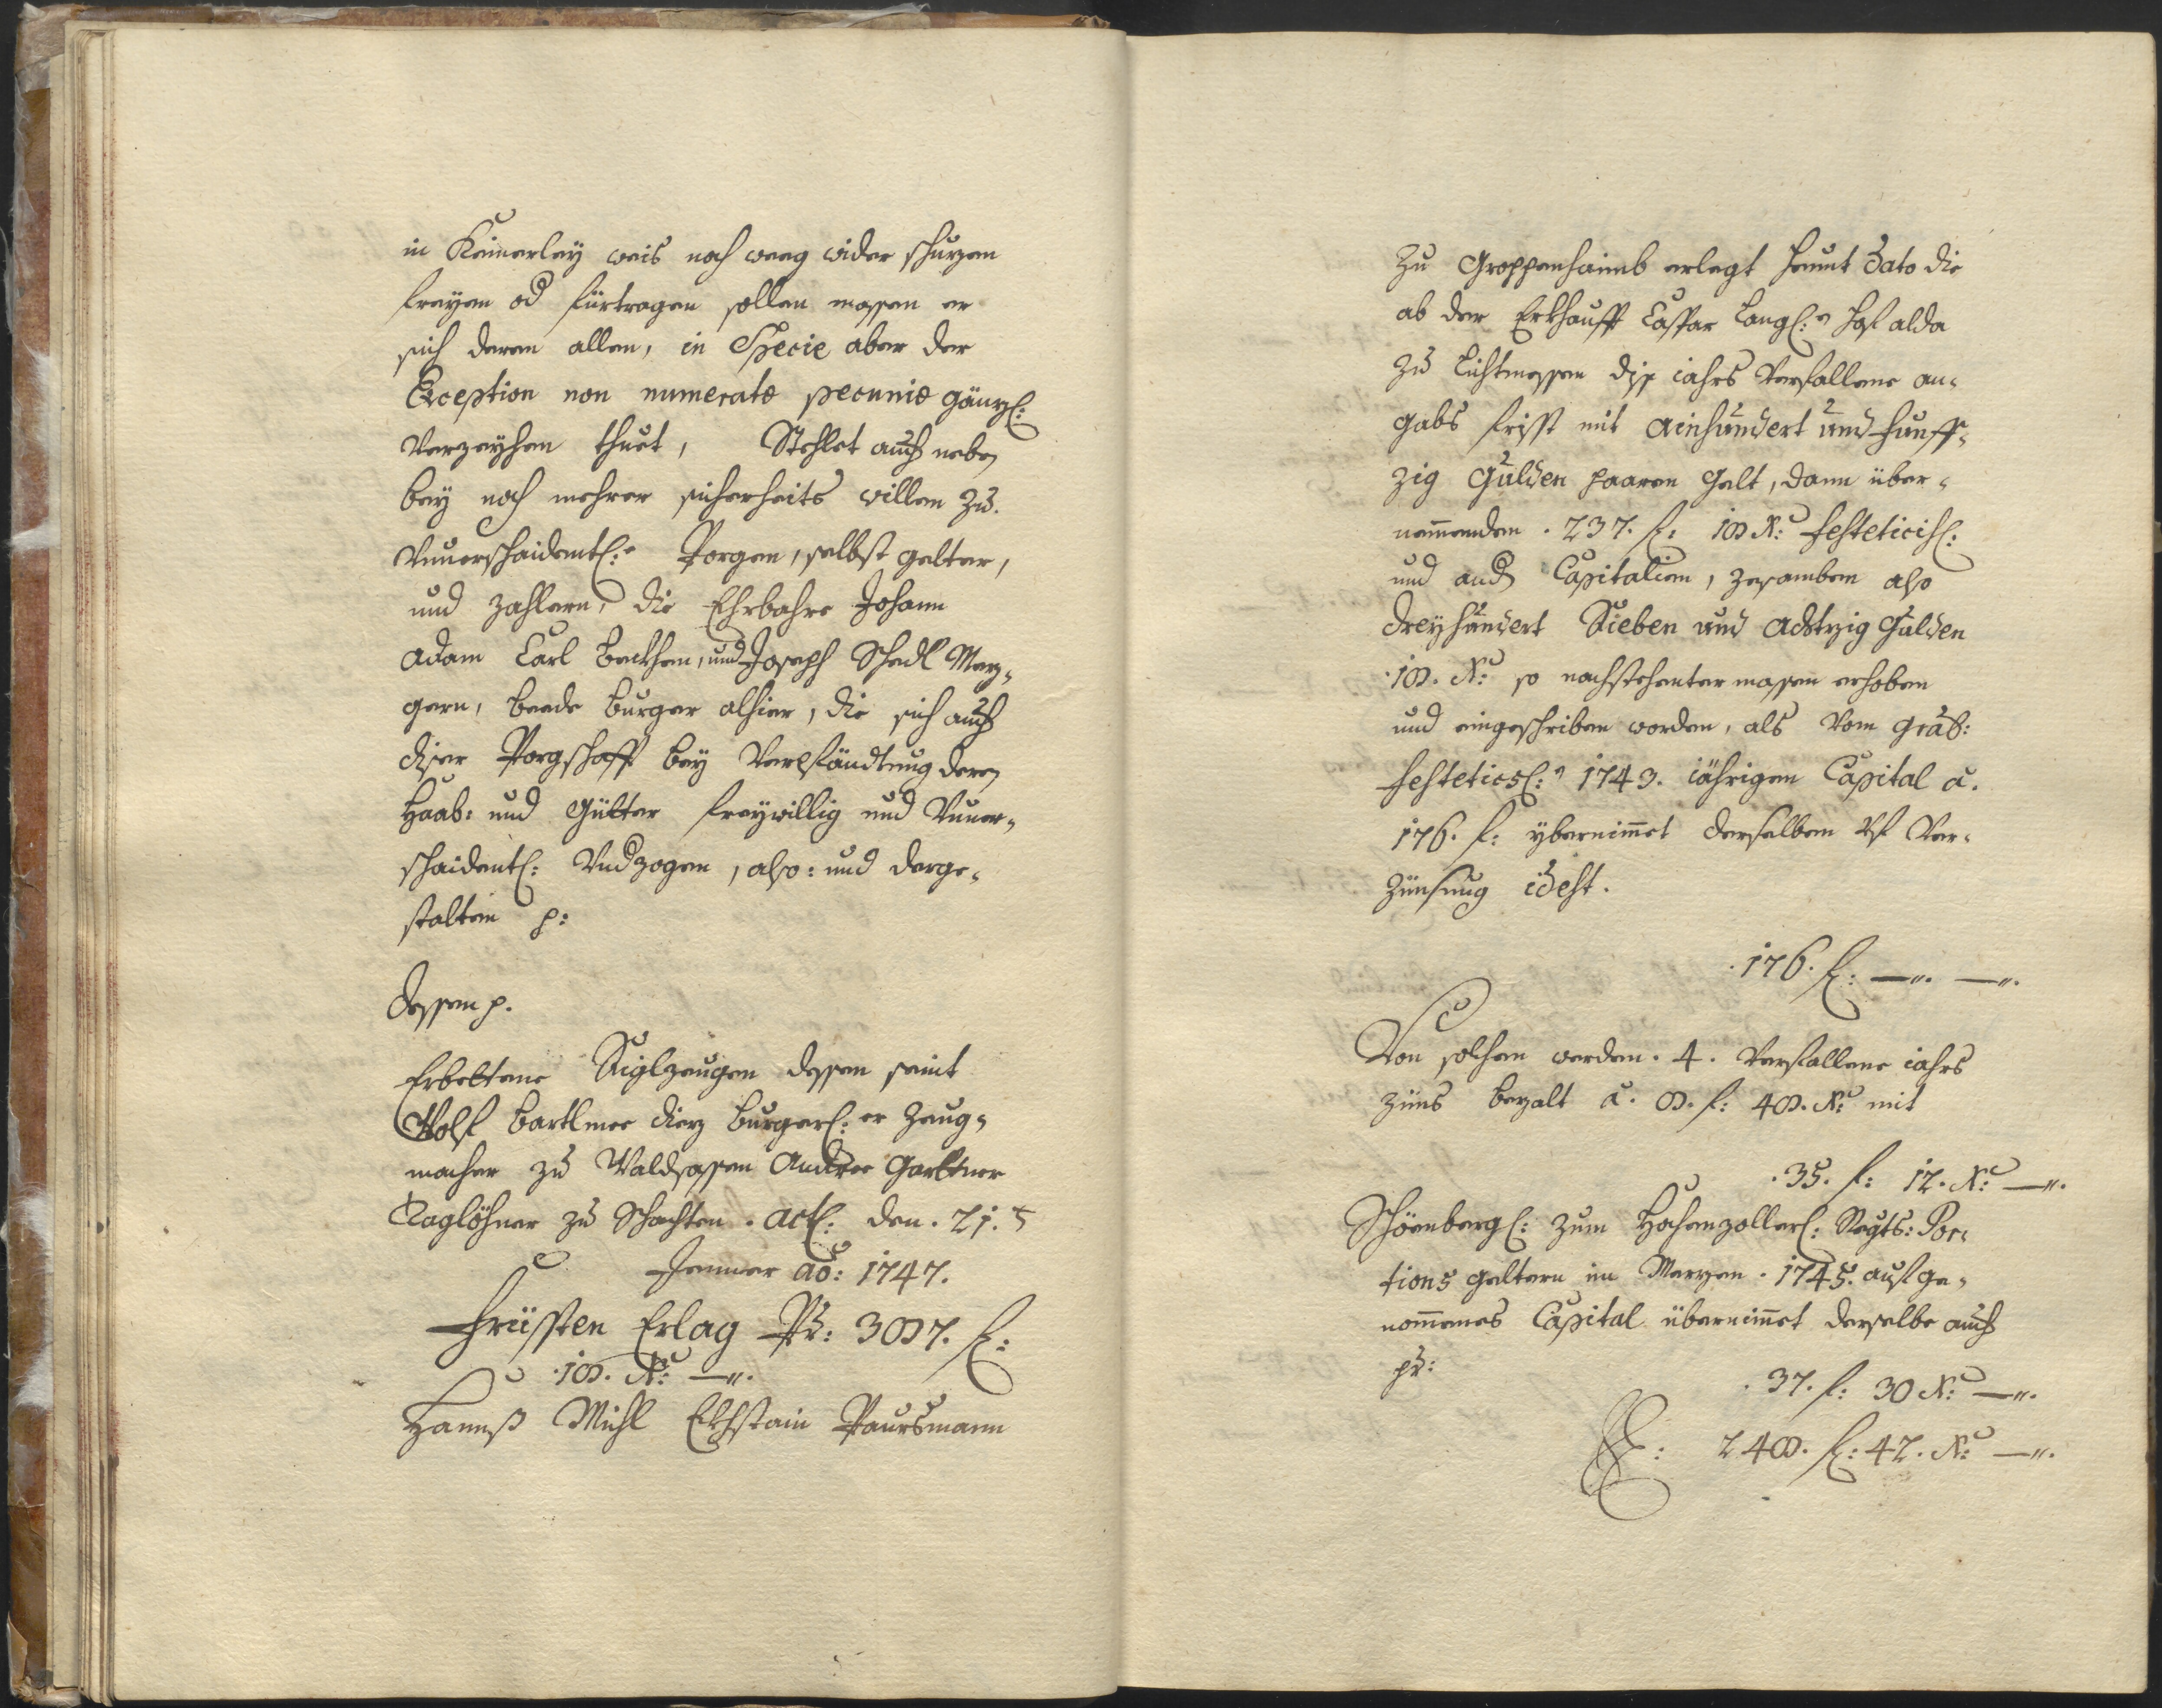 in Keinerley weis noch weeg wider schuzen
freyen od fürtragen sollen massen er
sich deren allen, in Specie aber der
Exception non numeratæ pecuniæ gänzl:
Verzeyhen thuet, Stehlet auch neben
bey noch mehrer sicherheits willen zu.
Vnuerschaidentl:e Porgen, selbst gelter,
und zahlern, die Ehrbahre Johann
Adam Carl Beckhen, und Joseph Schedl Mez,
gern, beede burger alhier, die sich auch
diser Porgschafft bey Verpfändtung deren
Haab: und Güetter freywillig und Vnuer,
schaidentl: Vndzogen, also: und derge,
stalten p:
dessen p.
Erbettene Siglzeugen dessen seint
Wolf Bartlmee dierz burgerl:er Zeug,
macher zu Waldsassen Andree Garttner
Taglöhner zu Schachten. Actl: den. 21.t
Jenner ao: 1747.
Früssten Erlag Pr: 387. fl:
.10. Xr: —".
Hannß Michl Ekhstain Paursmann
Zu Groppenheimb erlegt heunt dato die
ab der Erkhaufft Caspar Langl:n hof alda
zu Lichtmessen diß iahrs Verfallene an,
gabs frist mit Ainhundert und Funff,
zig Gulden paaren Gelt, dann über,
nemmenden . 237. fl: 10 Xr: Festeticisl:
und and Capitalien, zesamben also
dreyhundert Sieben und Achtzig Gulden
.10. Xr: so nachstehenter massen erhoben
und eingeschriben worden, als Vom gräf:
Festeticsl:n 1743. iährigen Capital à.
176. f: ybernimmet derselben Vf Ver,
Zünsung idest.
.176. fl: —". —".
Von solchen werden. 4. Verfallene iahrs
züns bezalt à. 8. f: 48. Xr: mit
.35. f: 12. Xr: —".
Schönbergl: zum Hohenzollerl: Regts: Por,
tions geltern im Merzen. 1745. aufge,
nommenes Capital übernimmet derselbe auch
pr:
. 37. f: 30 Xr: —".
248. fl: 42. Xr: —".